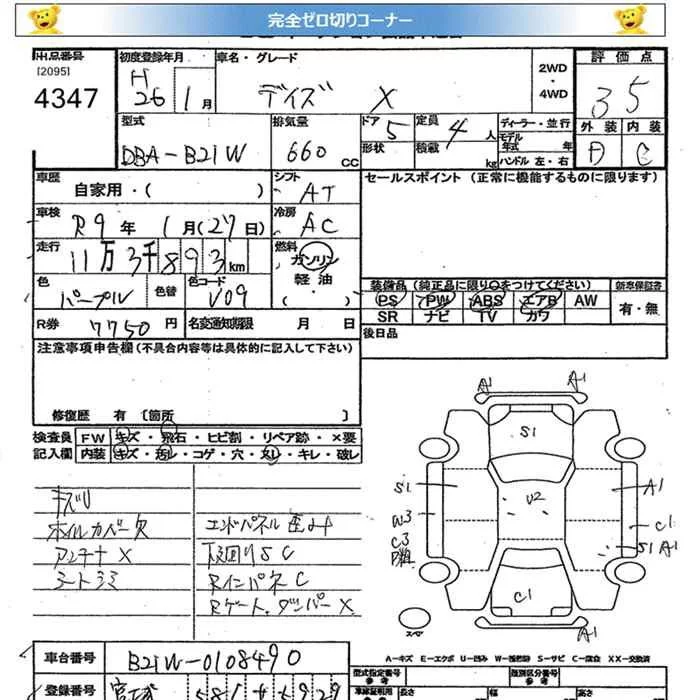 完全ゼロ切りコーナー
出品番号 初度登録年月 車名・グレード 2WD・4WD 評価点
[2095]
4347 H 26 1月 デイズ X 3 5
型式 排気量 ドア 5 定員 4人 ディーラー・並行 外装 内装
DBA-B21W 660cc 形状 積載 kg モデル年式 年 ハンドル 左・右 D C
車歴 自家用・( ) シフト AT セールスポイント (正常に機能するものに限ります)
車検 R9年 1月(27日) 冷房 AC
走行 11万3千893km 燃料 ガソリン 軽油 ・( )
色 パープル 色替 色コード V09
装備品 (純正品に限り○をつけてください) 新車保証書
PS PW ABS エアB AW 有・無
SR ナビ TV カワ
R券 7750円 名変通知期限 月 日 後日品
注意事項申告欄 (不具合内容等は具体的に記入して下さい)
修復歴 有 〔箇所 〕
検査員 FW キズ・飛石・ヒビ割・リペア跡・×要
記入欄 内装 キズ・汚レ・コゲ・穴・スレ・キレ・破レ
キズU
ホイルカバー欠 エンドパネル歪み
アンテナX 下回りSC
シートシミ RインパネC
Rゲートダンパー X
A1 A1
S1
S1 U2 A1
W3 C1
C3 S1 A1
C1
A1
スペア
A-キズ E-エクボ U-凹み W-補修跡 S-サビ C-腐食 XX-交換済
車台番号 B21W-0108490
型式指定番号 類別区分番号
登録番号 宮城 581
長さ 幅 高さ